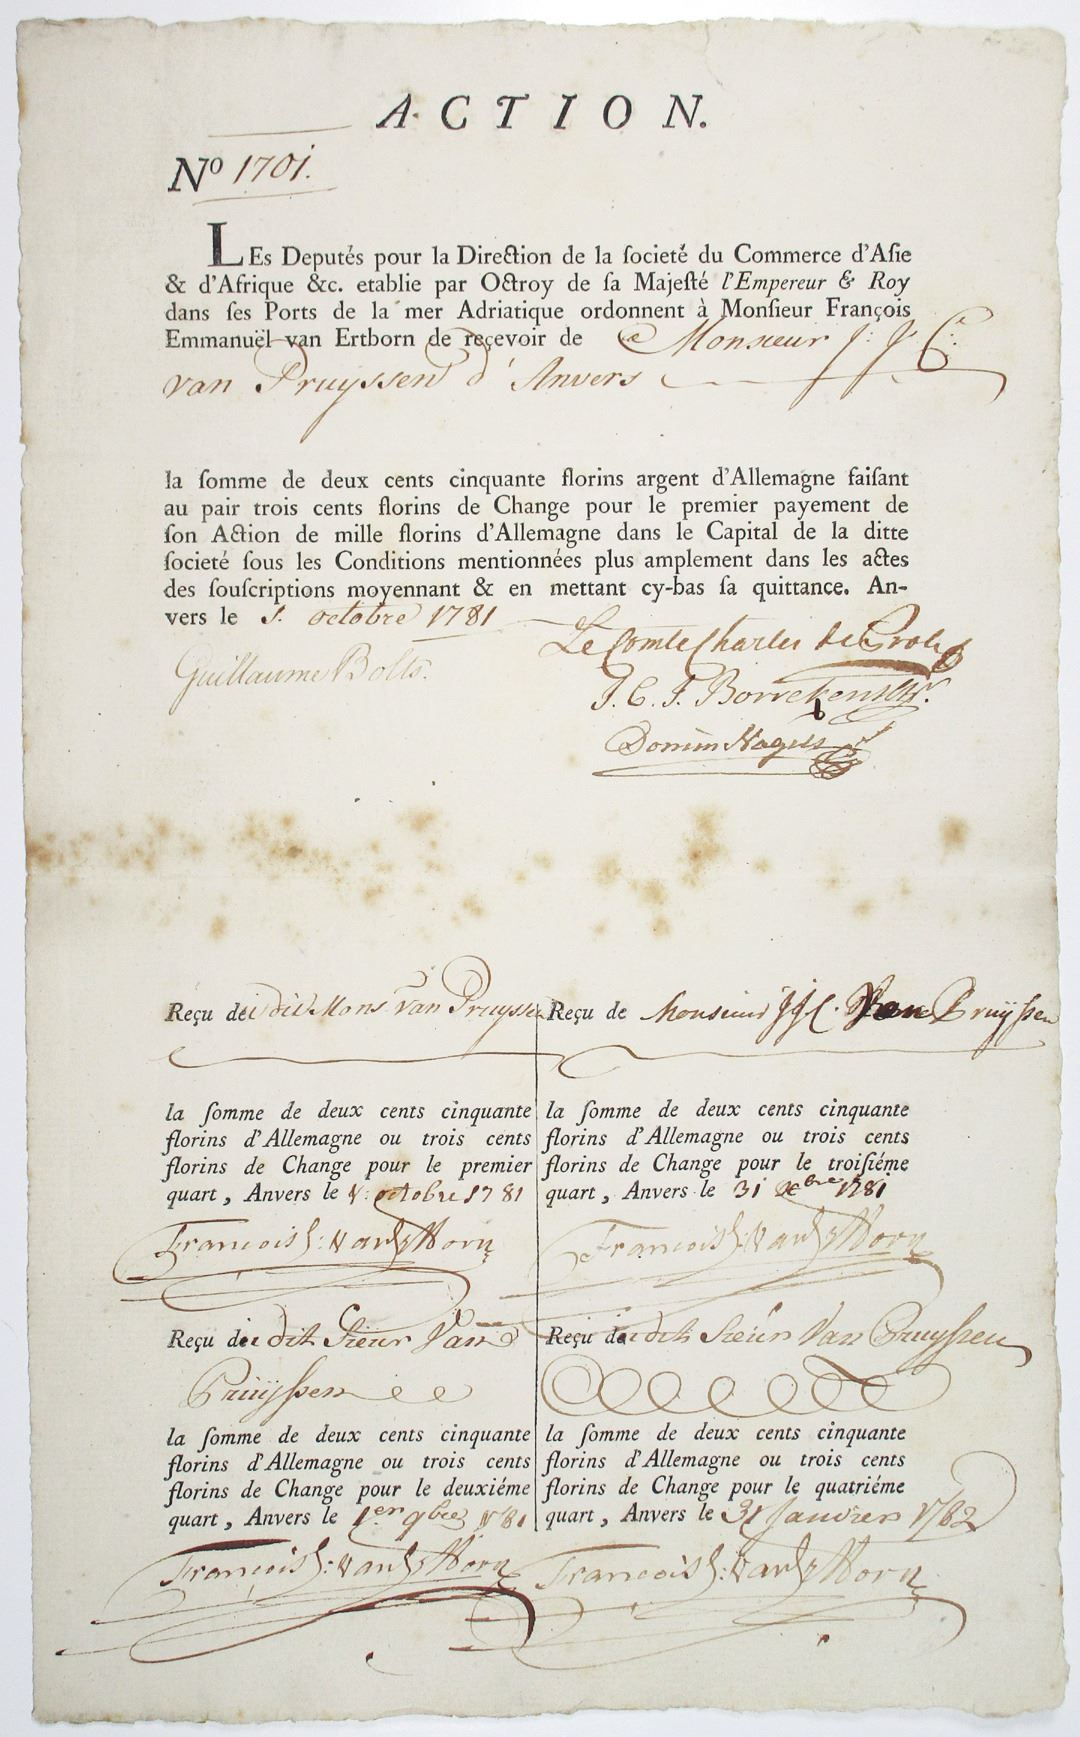 ACTION.
Nº 1701.
LEs Deputés pour la Direction de la ſocieté du Commerce d'Aſie
& d'Afrique &c. etablie par Octroy de ſa Majeſté l'Empereur & Roy
dans ſes Ports de la mer Adriatique ordonnent à Monſieur François
Emmanuël van Ertborn de reçevoir de Monsieur J: J: C:
van Pruyssen d'Anvers
la ſomme de deux cents cinquante florins argent d'Allemagne faiſant
au pair trois cents florins de Change pour le premier payement de
ſon Action de mille florins d'Allemagne dans le Capital de la ditte
ſocieté ſous les Conditions mentionnées plus amplement dans les actes
des ſouſcriptions moyennant & en mettant cy-bas ſa quittance. An-
vers le octobre 1781
Le Comte Charles de Proli
Guillaume Bolts.
J. C. J. Borrekens
Domin Nagels
Reçu du dit Mons van Pruyssen
la ſomme de deux cents cinquante
florins d'Allemagne ou trois cents
florins de Change pour le premier
quart, Anvers le octobre 1781
François E: van Ertborn
Reçu du dit Sieur Van
Pruÿſsen
la ſomme de deux cents cinquante
florins d'Allemagne ou trois cents
florins de Change pour le deuxiéme
quart, Anvers le 1er 9bre 1781
François E: van Ertborn
Reçu de Monsieur JJC. Van Pruÿſsen
la ſomme de deux cents cinquante
florins d'Allemagne ou trois cents
florins de Change pour le troiſiéme
quart, Anvers le 31 Xbre 1781
François E: van Ertborn
Reçu du dit Sieur Van Pruyſsen
la ſomme de deux cents cinquante
florins d'Allemagne ou trois cents
florins de Change pour le quatriéme
quart, Anvers le 31 Janvier 1782
François E: van Ertborn